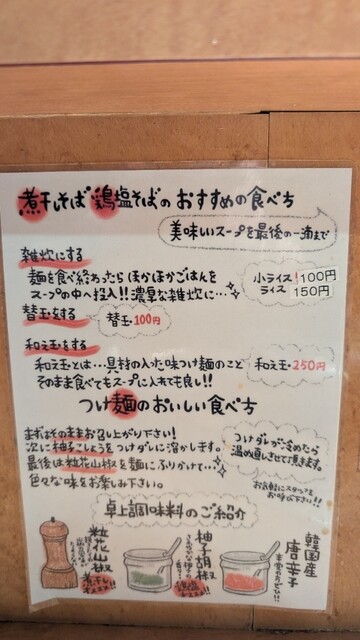 煮干しそば 鶏塩そばの おすすめの食べ方
美味しいスープを最後の一滴まで
雑炊にする
麺を食べ終わったら ほかほかごはんを
スープの中へ投入!!濃厚な雑炊に…
小ライス 100円
ライス 150円
替玉をする
替玉・100円
和え玉をする
和え玉とは…具材の入った味つけ麺のこと
そのまま食べてもスープに入れても良し!!
和え玉・250円
つけ麺のおいしい食べ方
まずはそのままお召し上がり下さい!
次に柚子こしょうをつけダレに溶かします。
最後は粒花山椒を麺にふりかけて…
色々な味をお楽しみ下さい。
つけダレが冷めたら
温め直しさせて頂きます。
お気軽にスタッフを
お呼び下さい!!
卓上調味料のご紹介
粒花山椒
煮干しに
オススメ!!
柚子胡椒
鶏塩に
オススメ!!
韓国産
唐辛子